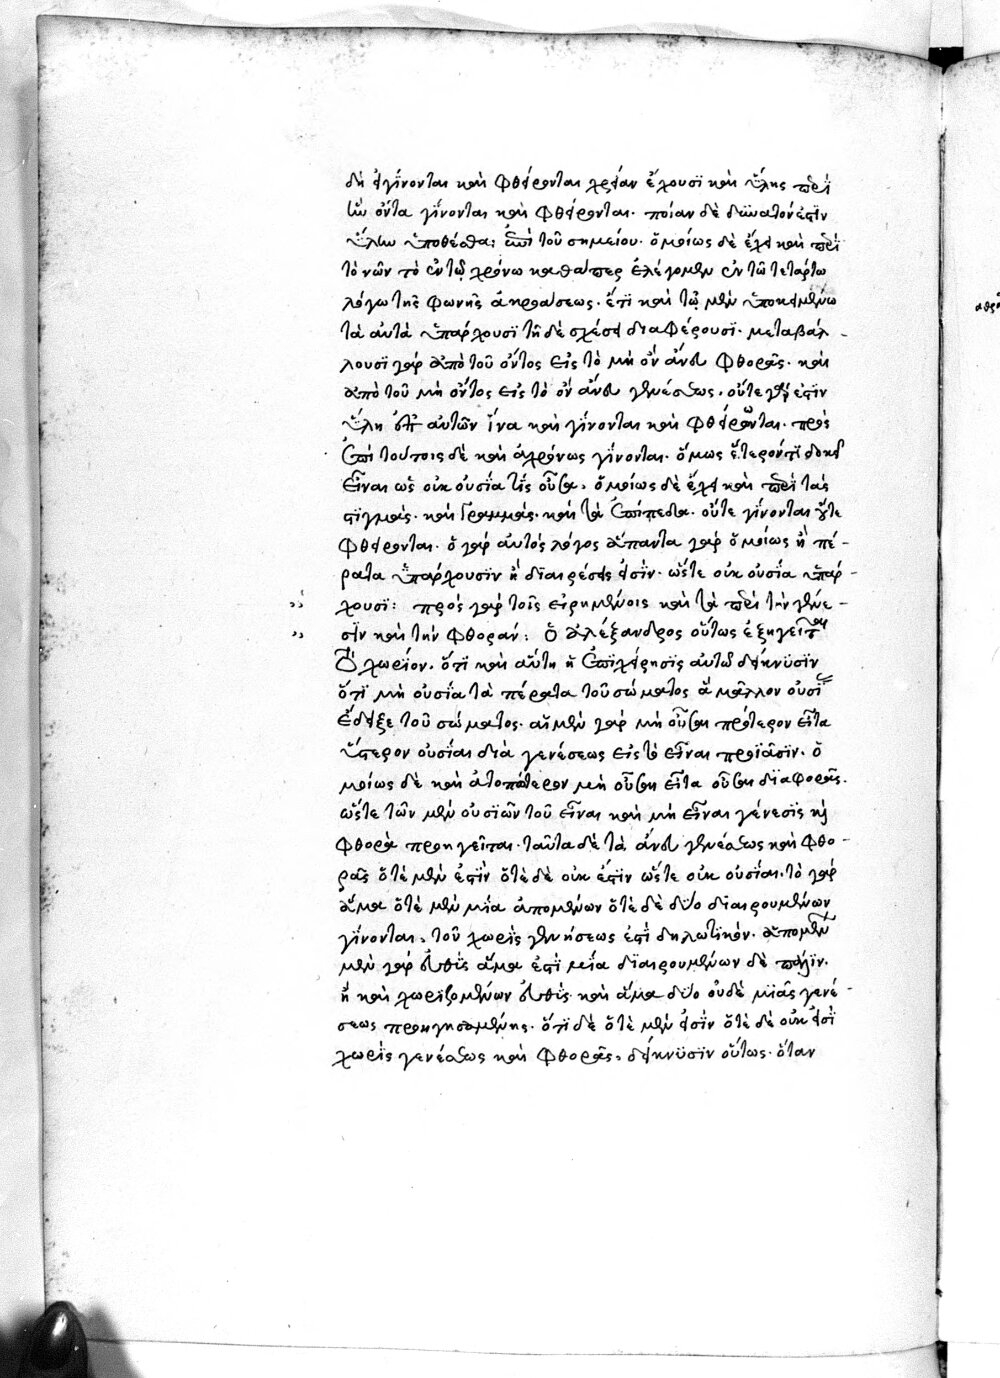 δὴ εἰ γίνονται καὶ φθείρονται χρείαν ἔχουσι καὶ ὕλης περὶ
ἣν ὄντα γίνονται καὶ φθείρονται· ποίαν δὲ δυνατόν ἐστιν
ὕλην ὑποθέσθαι ἐπὶ τοῦ σημείου· ὁμοίως δὲ ἔχει καὶ περὶ
τὸ νῦν τὸ ἐν τῷ χρόνω καθάπερ ἐλέγομεν ἐν τῶ τετάρτω
λόγω τῆς φωνῆς ἀκροάσεως· ἔτι καὶ τῷ μὲν ὑποκειμένω
τὰ αὐτὰ ὑπάρχουσι τῆ δὲ σχέσει διαφέρουσι· μεταβάλ-
λουσι γὰρ ἀπὸ τοῦ ὄντος εἰς τὸ μὴ ὂν ἄνευ φθορᾶς· καὶ
ἀπὸ τοῦ μὴ ὄντος εἰς τὸ ὂν ἄνευ γενέσεως· οὔτε γάρ ἐστιν
ὕλη ἐπ αὐτῶν ἵνα καὶ γίνονται καὶ φθείρωνται· πρὸς
ἐπὶ τούτοις δὲ καὶ ἀχρόνως γίνονται· ὅμως ἕτερόν τι δοκεῖ
εἶναι ὡς οὐκ οὐσία τίς οὖσα· ὁμοίως δὲ ἔχει καὶ περὶ τὰς
στιγμάς· καὶ γραμμάς· καὶ τὰ ἐπίπεδα· οὔτε γίνονται οὔτε
φθείρονται· ὁ γὰρ αὐτὸς λόγος ἅπαντα γὰρ ὁμοίως ἢ πέ-
ρατα ὑπάρχουσιν ἢ διαιρέσεις εἰσίν· ὥστε οὐκ οὐσία ὑπάρ-
χουσι: πρὸς γὰρ τοῖς εἰρημένοις καὶ τὰ περὶ τὴν γένε-
σιν καὶ τὴν φθοράν: Ὁ ἀλέξανδρος οὕτως ἐξηγεῖται
τὸ χωρίον· ὅτι καὶ αὕτη ἡ ἐπιχείρησις αὐτῶ δείκνυσιν
ὅτι μὴ οὐσία τὰ πέρατα τοῦ σώματος ἃ μᾶλλον οὐσί
ἔδειξε τοῦ σώματος· αἱ μὲν γὰρ μὴ οὖσαι πρότερον εἶτα
ὕστερον οὐσίαι διὰ γενέσεως εἰς τὸ εἶναι προϊᾶσιν· ὁ
μοίως δὲ καὶ ἀτοπώτερον μὴ οὖσαι εἶτα οὖσαι διαφορᾶς·
ὥστε τῶν μὲν οὐσιῶν τοῦ εἶναι καὶ μὴ εἶναι γένεσις καὶ
φθορὰ προηγεῖται· ταῦτα δὲ τὰ ἄνευ γενέσεως καὶ φθο-
ρᾶς ὁτὲ μὲν ἐστὶν ὁτὲ δὲ οὐκ ἐστὶν ὥστε οὐκ οὐσίαι· τὸ γὰρ
ἅμα ὁτὲ μὲν μία ἁπομένων ὁτὲ δὲ δύο διαιρουμένων
γίνονται, τοῦ χωρὶς γεννήσεως ἐστὶ δηλωτικόν· ἁπομένων
μὲν γὰρ εὐθὺς ἅμα ἐστὶ μία διαιρουμένων δὲ πάλιν·
ἢ καὶ χωριζομένων εὐθύς· καὶ ἅμα δύο οὐδὲ μιᾶς γενέ-
σεως προηγησαμένης· ὅτι δὲ ὁτὲ μὲν εἰσὶν ὁτὲ δὲ οὐκ εἰσὶ
χωρὶς γενέσεως καὶ φθορᾶς, δείκνυσιν οὕτως· ὅταν